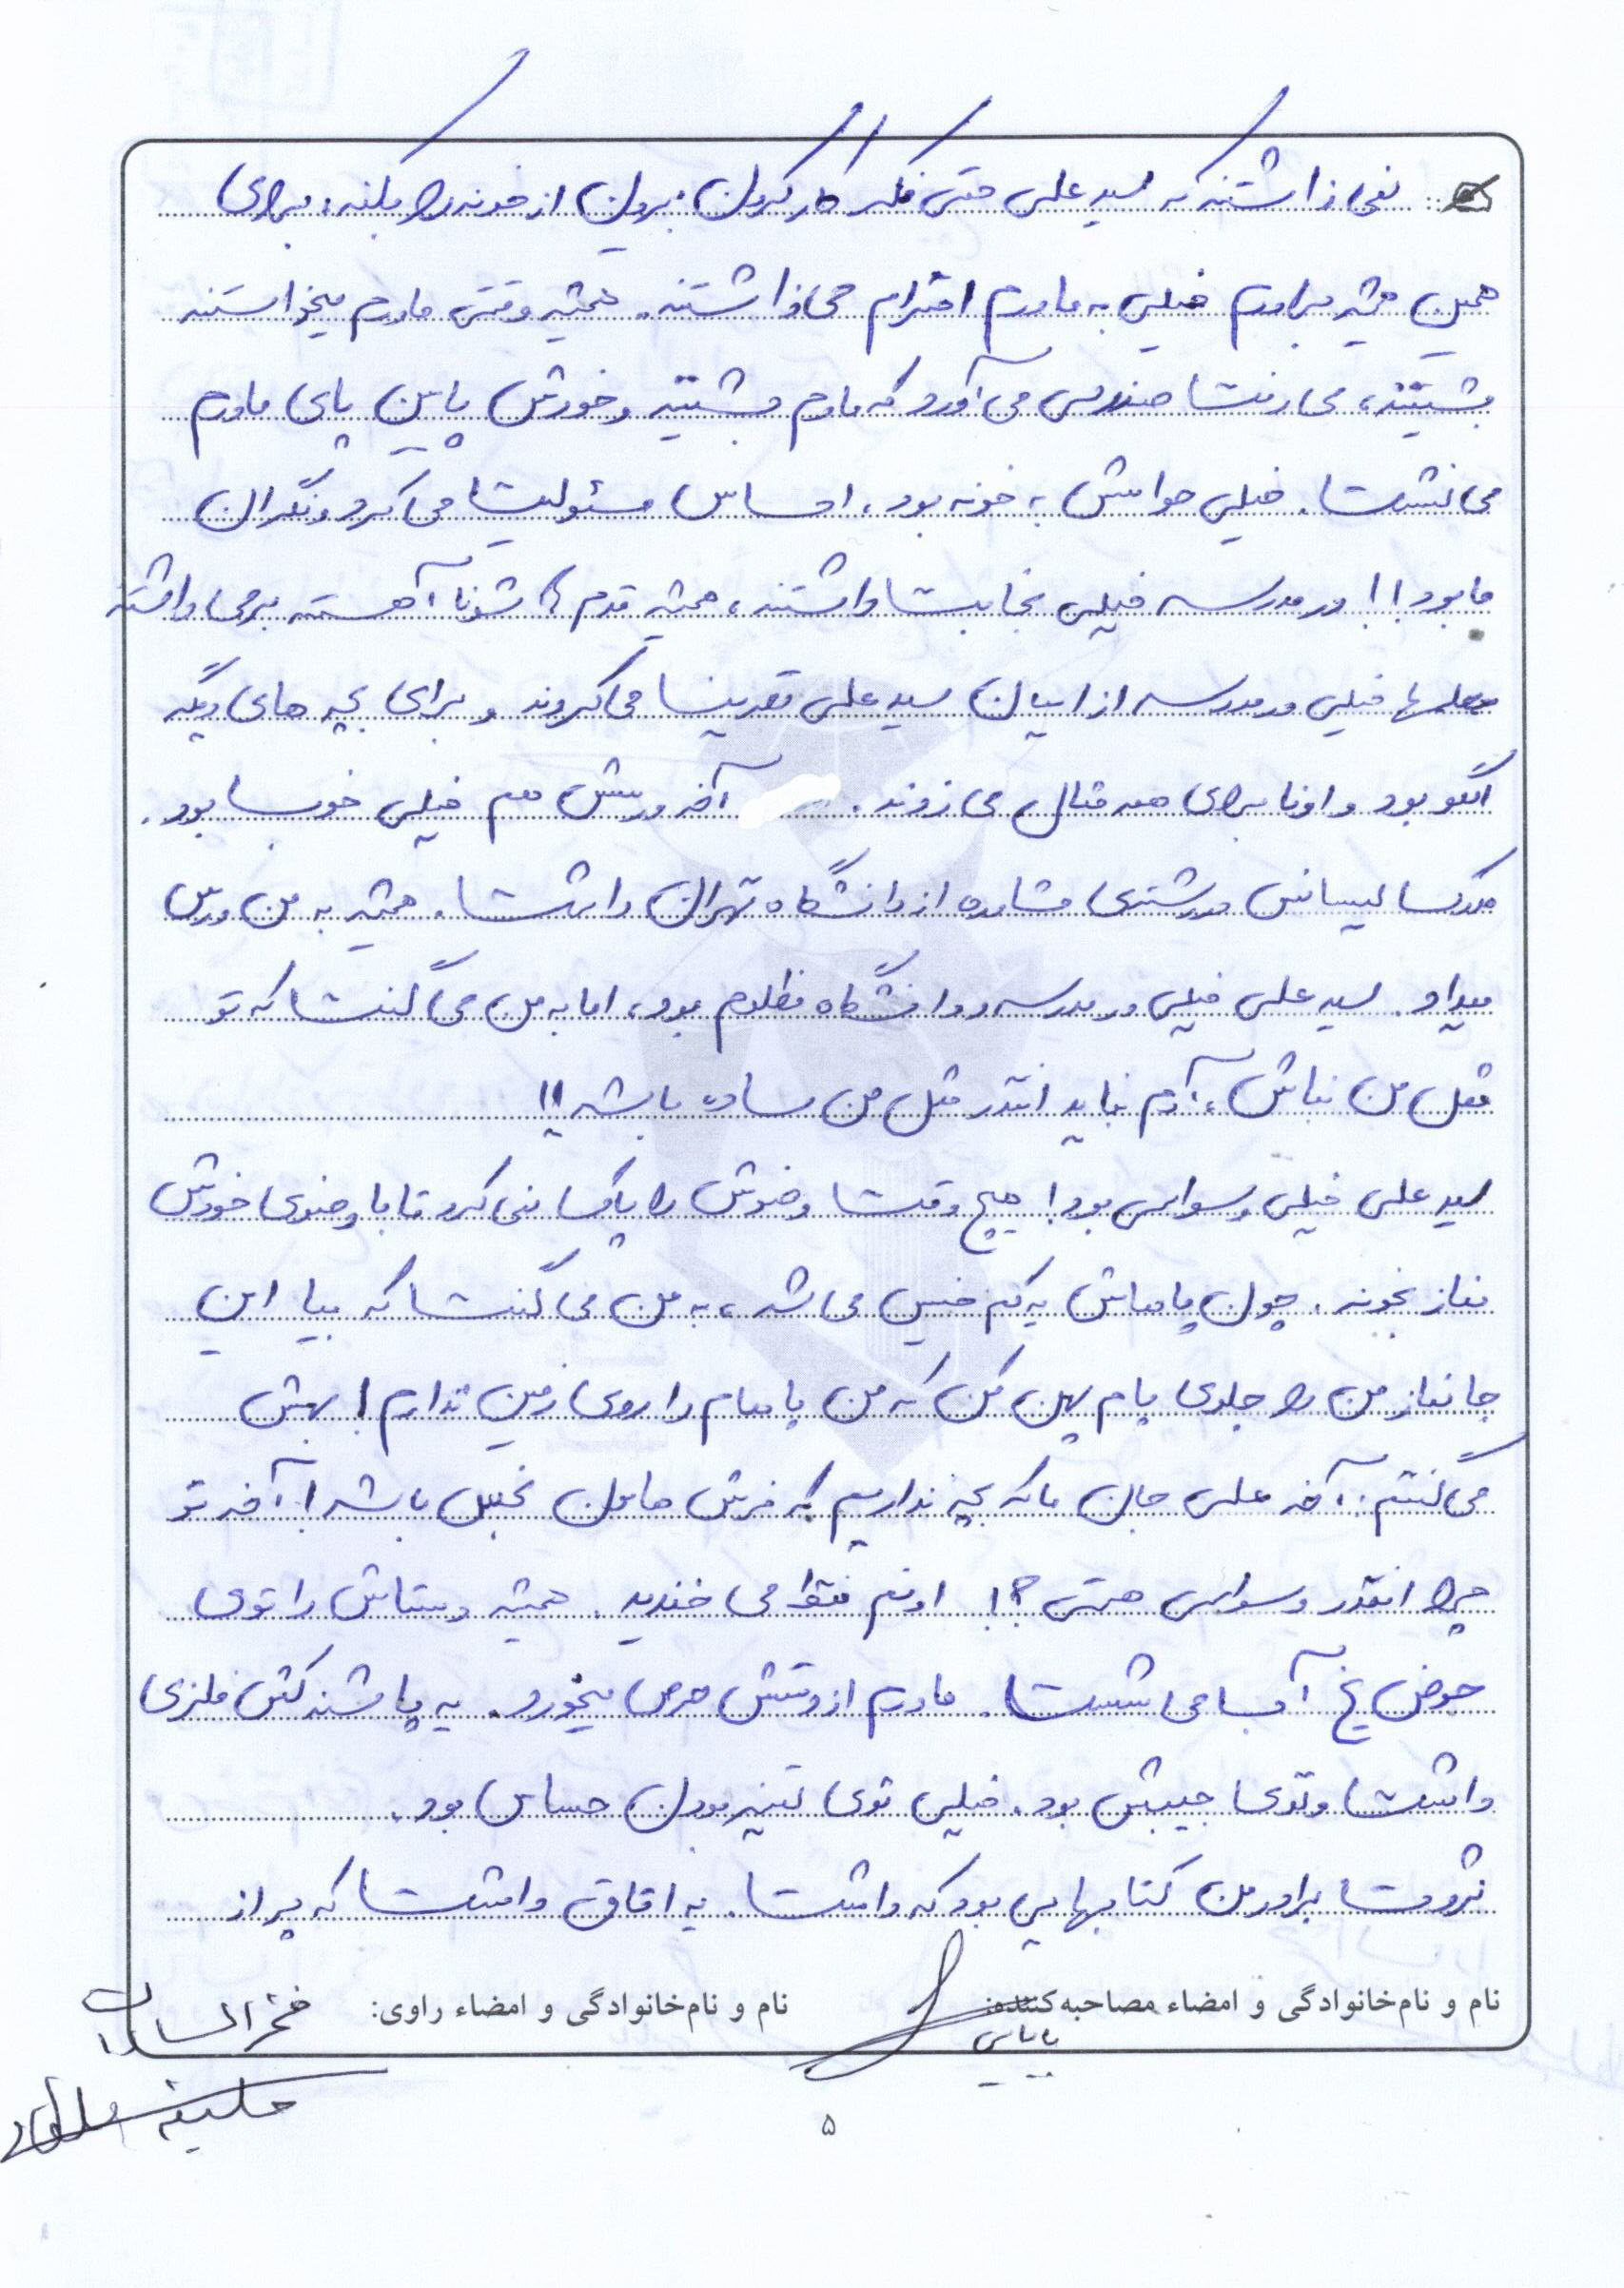 نمی ذاشتند که سید علی حتی فکر کار کردن بیرون از خونه را بکنه، برای
همین همیشه برادرم خیلی به مادرم احترام می ذاشتند. همیشه وقتی مادرم میخواستند
بشینند، می رفت صندلی می آورد که مادرم بشینند و خودش پایین پای مادرم
می نشست. خیلی حواسش به خونه بود، احساس مسئولیت می کرد و نگران
ما بود!! در مدرسه خیلی نجابت داشتند، همیشه قدم هاشونا آهسته برمی داشتند
معلم ها خیلی در مدرسه از ایشان سید علی تعریف می کردند و برای بچه های دیگه
الگو بود و اونا برای همه مثال می زدند. آخه درسش هم خیلی خوب بود.
مدرک لیسانس در رشته‌ی مشاوره از دانشگاه تهران داشت. همیشه به من درس
میداد. سید علی خیلی در مدرسه و دانشگاه مظلوم بود، اما به من می گفت که تو
مثل من نباش، آدم نباید انقدر مثل من ساده باشه!!
سید علی خیلی وسواس بود! هیچ وقت وضوش را پاک نمی کرد تا با وضوی خودش
نماز بخونه. چون پاهاش یه کم خیس می شد، به من می گفت که بیا این
جا نماز من را جلوی پام پهن کن که من پاهام را روی زمین نذارم! بهش
می گفتم: آخه علی جان ما که بچه نداریم که فرش هامون نجس باشه! آخه تو
چرا انقدر وسواس هستی؟! اونم فقط می خندید. همیشه دستاش را توی
حوض یخ آب می شست. مادرم از دستش حرص میخورد. یه پاشنه کش فلزی
داشت و توی جیبش بود. خیلی توی تمیز بودن حساس بود.
ثروت برادر من کتابهایی بود که داشت. یه اتاق داشت که پر از
نام و نام‌خانوادگی و امضاء مصاحبه‌کننده: نام و نام‌خانوادگی و امضاء راوی: فخرالسادات
بابایی
خلیفه سلطانی
۵